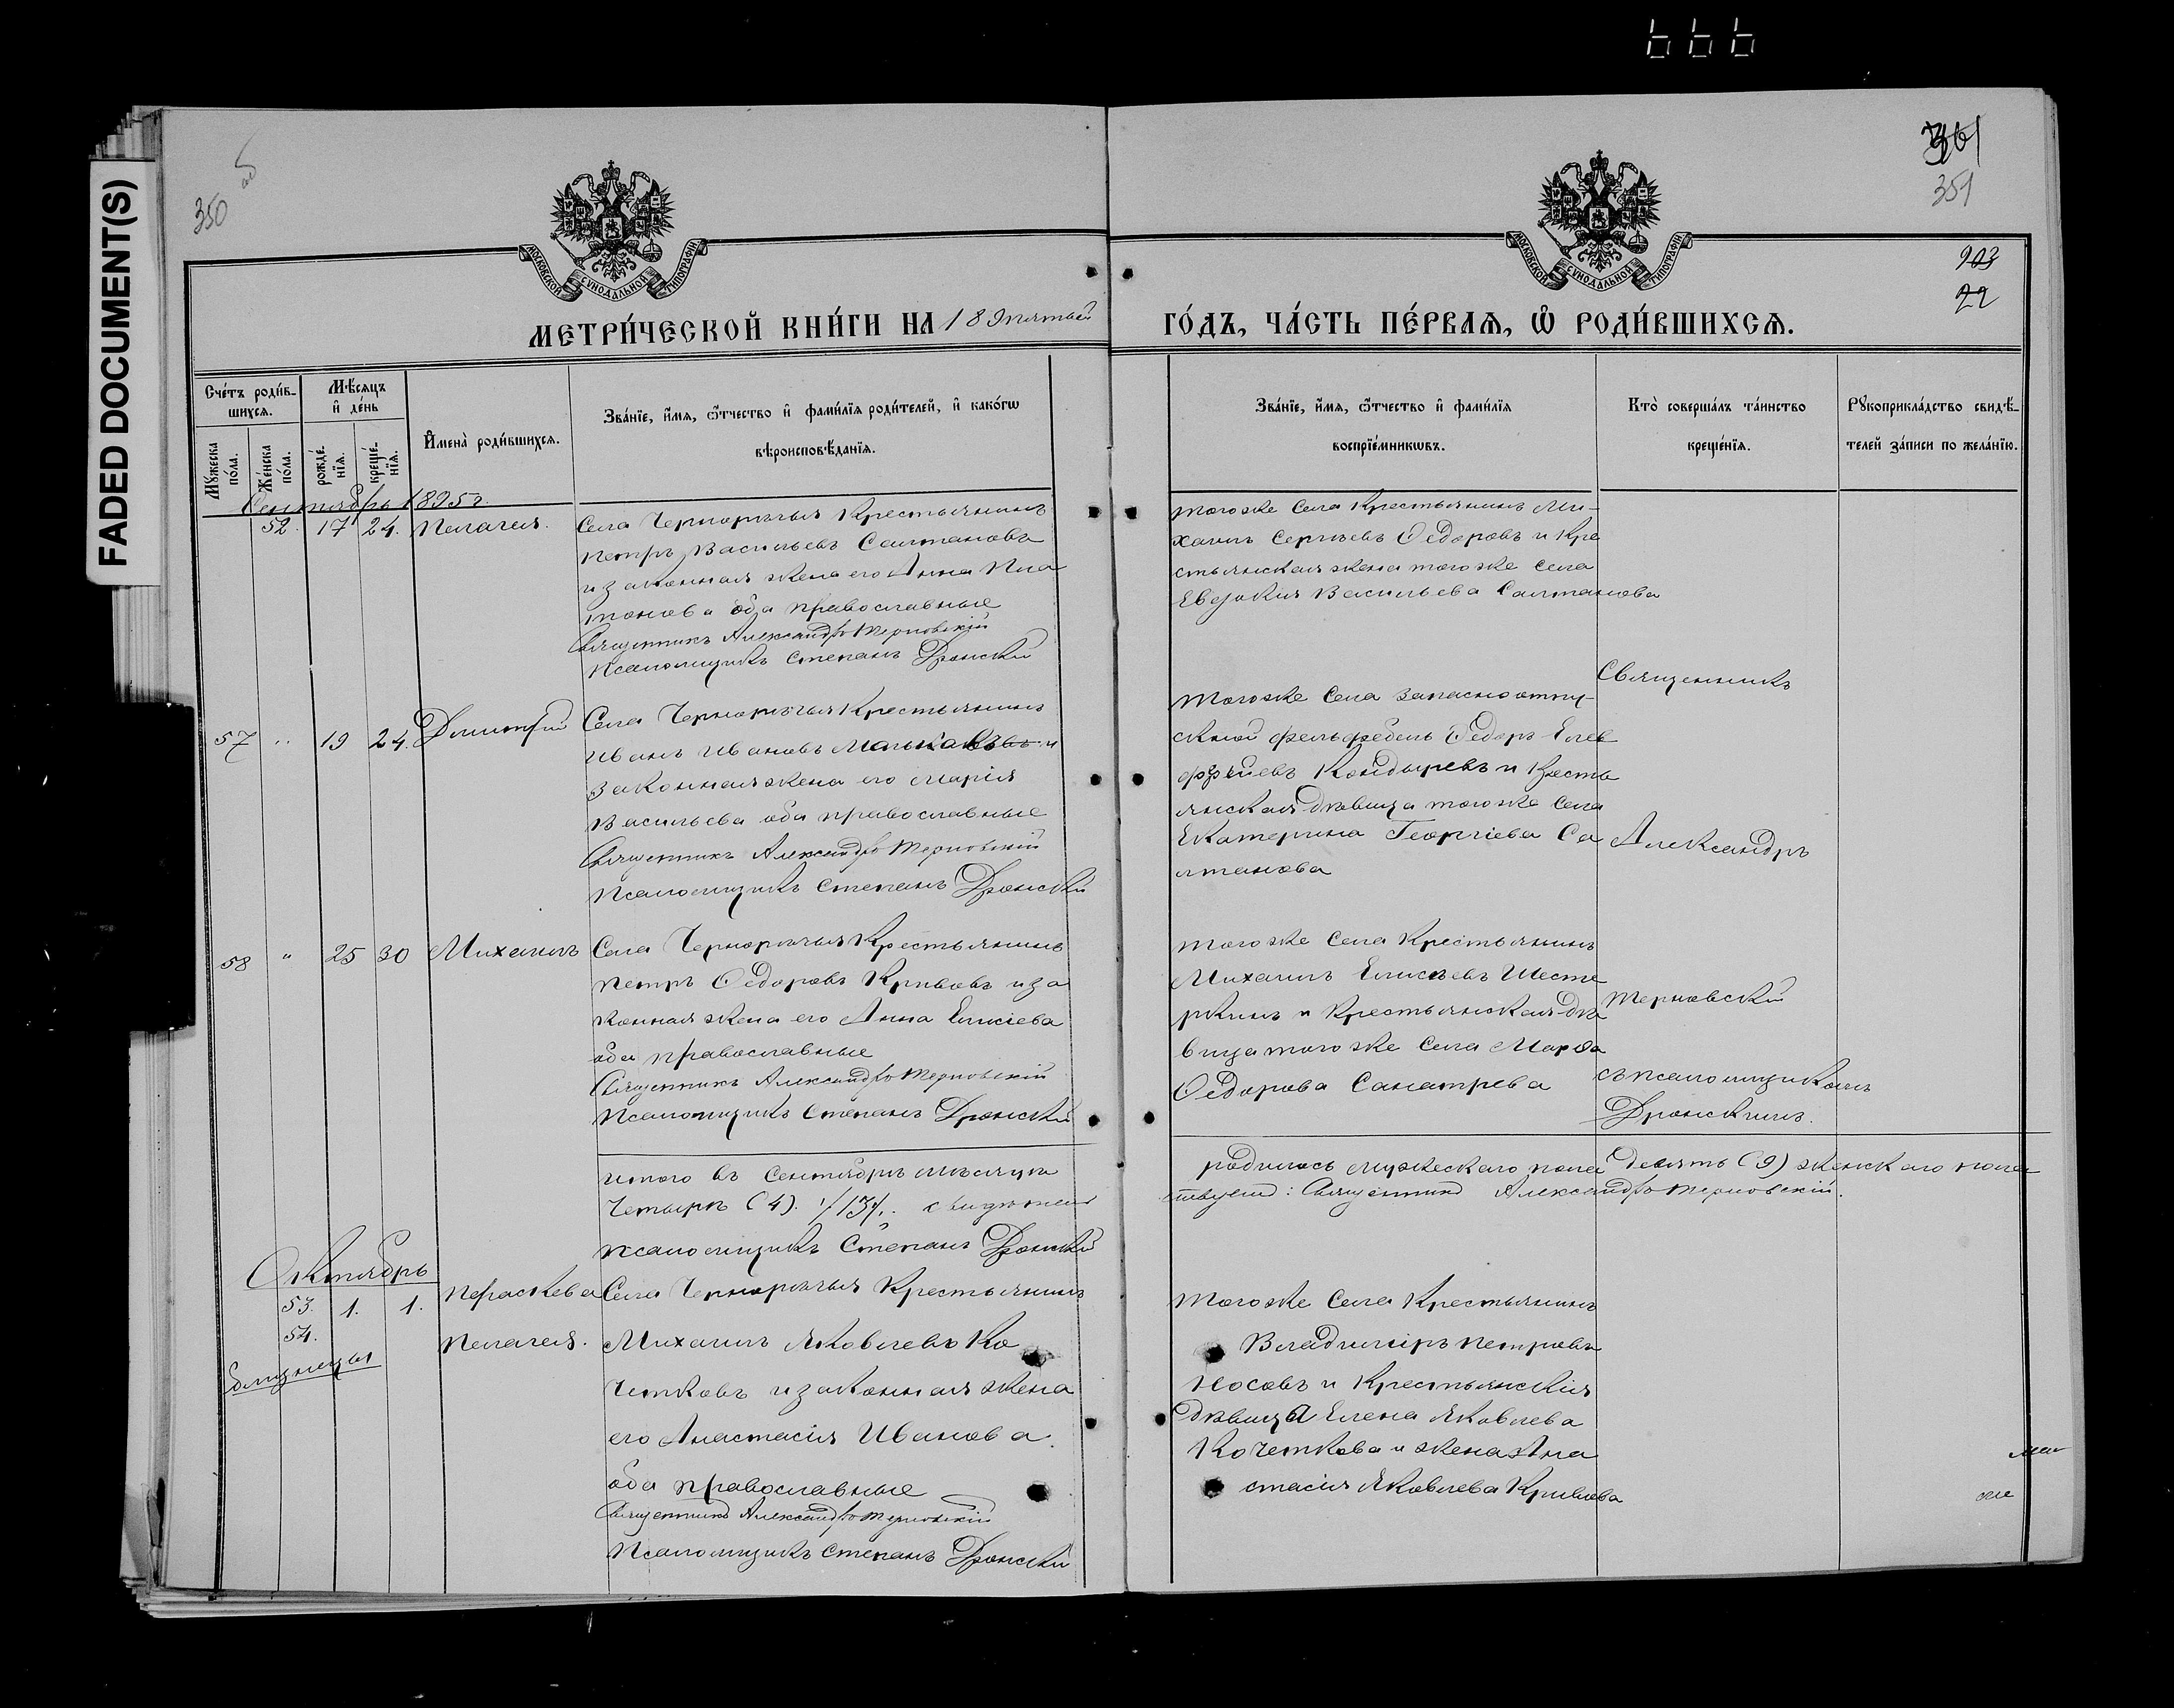 666
FADED DOCUMENT(S)
350 об
361
351
903
22
МОСКОВСКОЙ СѴНОДАЛЬНОЙ ТИПОГРАФІИ
МОСКОВСКОЙ СѴНОДАЛЬНОЙ ТИПОГРАФІИ
МЕТРИ́ЧЕСКОЙ КНИ́ГИ НА 189пятый
ГО́ДЪ, ЧА́СТЬ ПЕ́РВАЯ, Ѽ РОДИ́ВШИХСЯ.
Сче́тъ роди́в-
шихся.
Мꙋжеска по́ла.
Же́нска по́ла.
Мѣ́сяцъ
и҆ де́нь
рожде́нїя.
креще́нїя.
И҆мена̀ роди́вшихся.
Зва́нїе, и҆́мя, ѻ҆́тчество и҆ фами́лїя роди́телей, и҆ како́гѡ
вѣроисповѣ́данїя.
Зва́нїе, и҆́мя, ѻ҆́тчество и҆ фами́лїя
воспрїе́мникѡвъ.
Кто̀ соверша́лъ та́инство
креще́нїя.
Рꙋкоприкла́дство свидѣ́-
телей за́писи по жела́нїю.
Сентябрь 1895 г.
52. 17 24. Пелагея.
Села Чернорѣчья Крестьянинъ
Петръ Васильевъ Салтановъ
и законная жена его Анна Пла
тонова оба православные
Священникъ Александръ Терновскій
Псаломщикъ Степанъ Дронскій
тогоже села Крестьянинъ Ми-
хаилъ Сергѣевъ Ѳедоровъ и Кре
стьянская жена тогоже села
Евдокия Васильева Салтанова
57 " 19 24. Димитрій
Села Чернорѣчья Крестьянинъ
Иванъ Ивановъ и
законная жена его Марія
Васильева оба православные
Священникъ Александръ Терновскій
Псаломщикъ Степанъ Дронскій
Тогоже села запасноотпу-
скной фельдфебель Ѳедоръ
Кондыревъ и Кресть
янская дѣвица тогоже села
Екатерина Георгіева Са
лтанова
58 " 25 30 Михаилъ
Села Чернорѣчья Крестьянинъ
Петръ Ѳедоровъ Кривовъ и за
конная жена его Анна Елисіева
оба православные
Священникъ Александръ Терновскій
Псаломщикъ Степанъ Дронскій
Тогоже села Крестьянинъ
Михаилъ Елисѣевъ Шесте
ркинъ и Крестьянская дѣ
вица тогоже села Марѳа
Ѳедорова
Священникъ
Александръ
Терновскій
съ псаломщикомъ
Дронскимъ.
итого въ Сентябрѣ мѣсяцѣ
родилось мужескаго пола Девять (9) женскаго пола
Четыре (4). /13/. свидѣтель
ствуетъ: Священникъ Александръ Терновскій.
псаломщикъ Степанъ Дронскій
Октябрь
53. 1. 1. Параскева
54. Пелагея.
близнецы
Села Чернорѣчья Крестьянинъ
Михаилъ Яковлевъ Ко
четковъ и законная жена
его Анастасія Иванова.
оба православные
Священникъ Александръ Терновскій
Псаломщикъ Степанъ Дронскій
Тогоже села Крестьянинъ
Владиміръ Петровъ
Носовъ и Крестьянскія
дѣвица Елена Яковлева
Кочеткова и жена Ана
стасія Яковлева Кривова